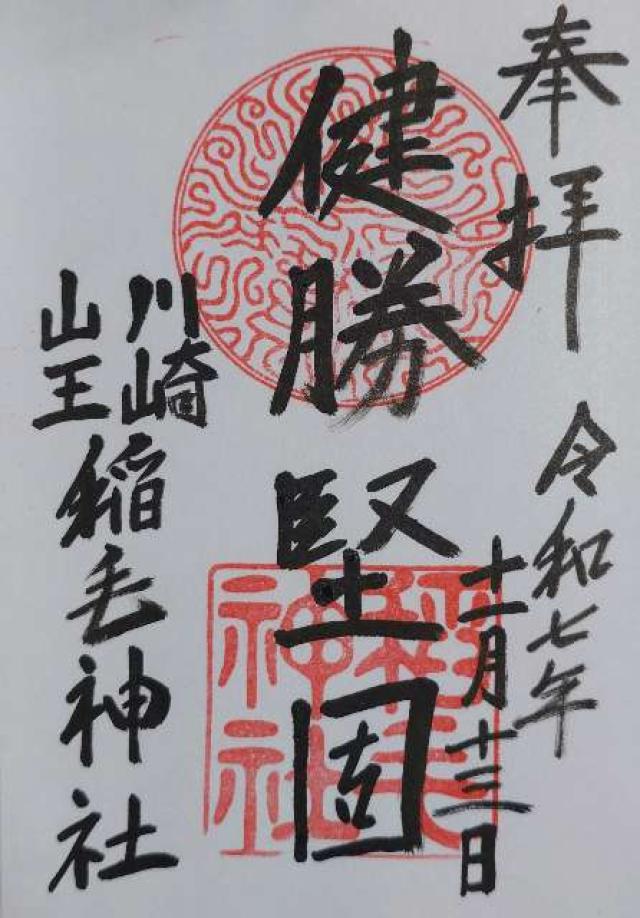 奉拝
令和七年
十一月十三日
健勝堅固
川崎
山王
稲毛神社
稲毛
神社